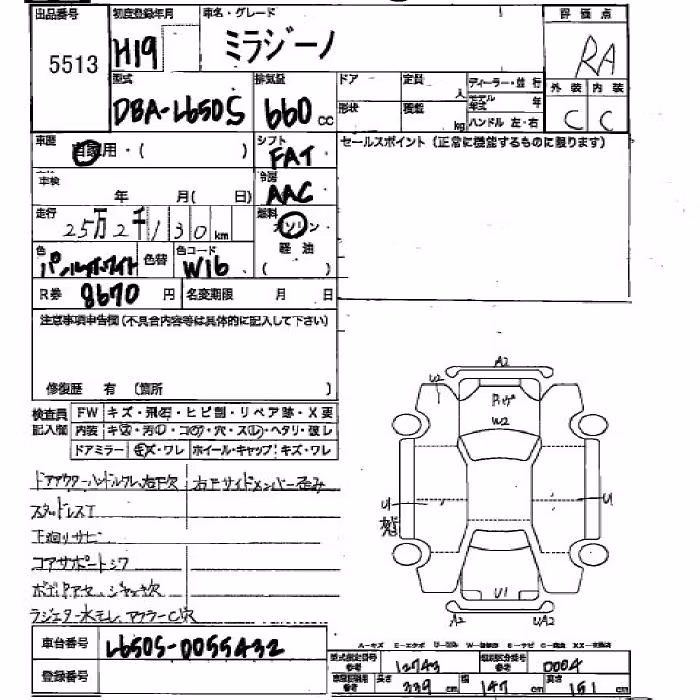 出品番号 5513
初度登録年月 H19
車名・グレード ミラジーノ
評価点 RA
型式 DBA-L650S
排気量 660 cc
ドア 形状
定員 人 積載 kg
ディーラー・並行
モデル年式 年
ハンドル 左・右
外装 C 内装 C
車歴 自家用・( )
シフト FAT
セールスポイント (正常に機能するものに限ります)
車検 年 月( 日)
冷房 AAC
走行 25万2千130km
燃料 ガソリン・軽油 ( )
色 パールホワイト 色替
色コード W16
R券 8670 円 名変期限 月 日
注意事項申告欄(不具合内容等は具体的に記入して下さい)
修復歴 有 (箇所 )
検査員記入欄
FW キズ・飛石・ヒビ割・リペア跡・X要
内装 キズ・汚れ・コゲ・穴・スレ・ヘタリ・破レ
ドアミラー キズ・ワレ ホイール・キャップ:キズ・ワレ
ドアアウターハンドルワレ、右下欠
右Fサイドメンバー歪み
スタッドレスT
下廻りサビ
コアサポートシワ
ラジエター水モレ、マフラーC穴
A2
U2
W2
U
U
U1
A2 UA2
A-キズ E-エクボ U-凹み W-補修跡 S-サビ C-腐食 XX-交換済
車台番号 L650S-0055432
登録番号
型式指定番号 参考 12743
類別区分番号 参考 0004
参考 長さ 339 cm 幅 147 cm 高さ 151 cm